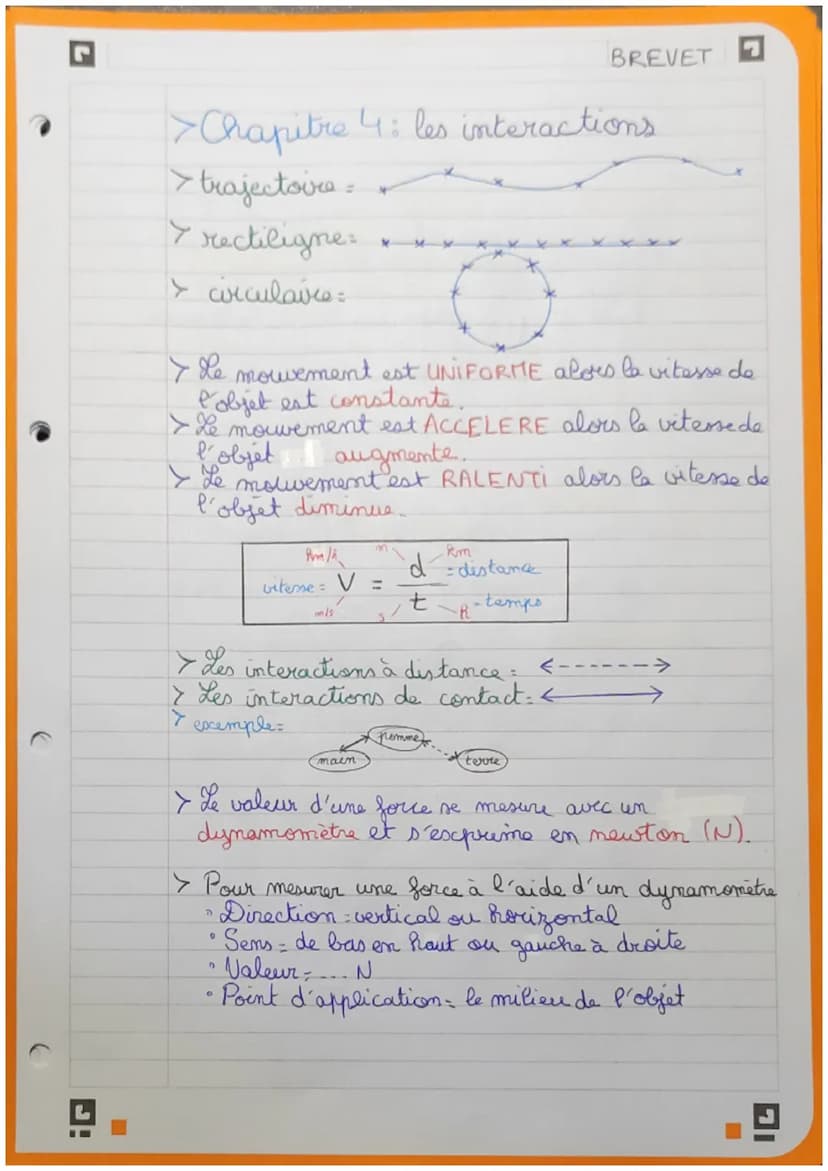 BREVET
>Chapitre 4: les interactions
> trajectoire =
> rectiligne=
> circulaire=
> Le mouvement est UNIFORME alors la vitesse de
l'objet est constante.
> Le mouvement est ACCELERE alors la vitesse de
l'objet augmente.
> Le mouvement est RALENTI alors la vitesse de
l'objet diminue.
km/h m km
vitesse = V = d = distance
m/s s t h = temps
> Les interactions à distance = <------>
> Les interactions de contact= <——>
> exemple=
pomme
main terre
> Le valeur d'une force se mesure avec un
dynamomètre et s'exprime en newton (N).
> Pour mesurer une force à l'aide d'un dynamomètre
° Direction = vertical ou horizontal
° Sens = de bas en haut ou gauche à droite
° Valeur = ... N
° Point d'application = le milieu de l'objet